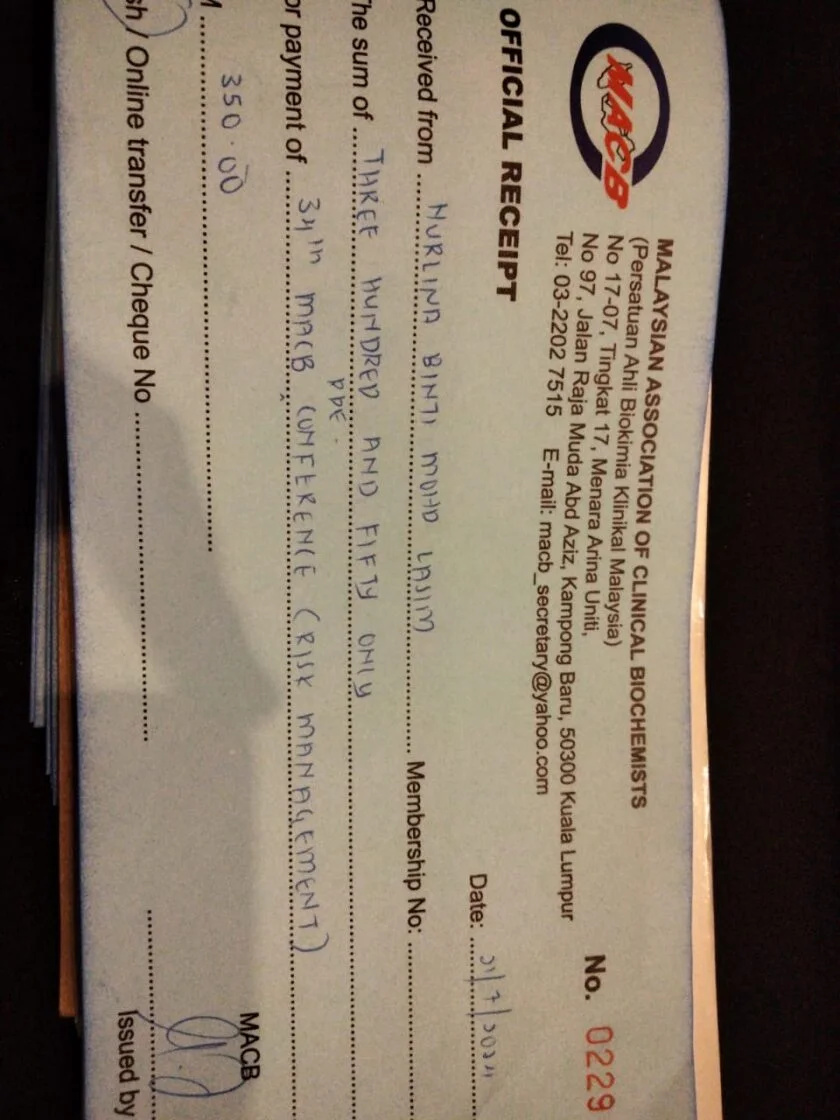 MACB
MALAYSIAN ASSOCIATION OF CLINICAL BIOCHEMISTS
(Persatuan Ahli Biokimia Klinikal Malaysia)
No 17-07, Tingkat 17, Menara Arina Uniti,
No 97, Jalan Raja Muda Abd Aziz, Kampong Baru, 50300 Kuala Lumpur
Tel: 03-2202 7515 E-mail: macb_secretary@yahoo.com
No. 0229
OFFICIAL RECEIPT
Date: ..../7/2024
Received from NURLINA BINTI MOHD LAJIM Membership No:
The sum of THREE HUNDRED AND FIFTY ONLY
PRE
or payment of 34th MACB CONFERENCE (RISK MANAGEMENT)
M 350.00
MACB
sh / Online transfer / Cheque No
Issued by